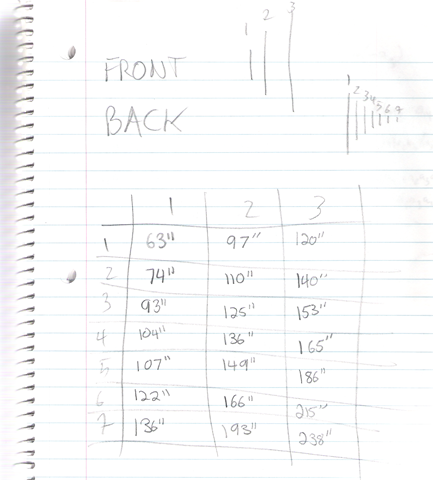 1 2 3
FRONT
BACK
1 2 3 4 5 6 7
1 2 3
1 63" 97" 120"
2 74" 110" 140"
3 93" 125" 153"
4 104" 136" 165"
5 107" 149" 186"
6 122" 166" 215"
7 136" 193" 238"